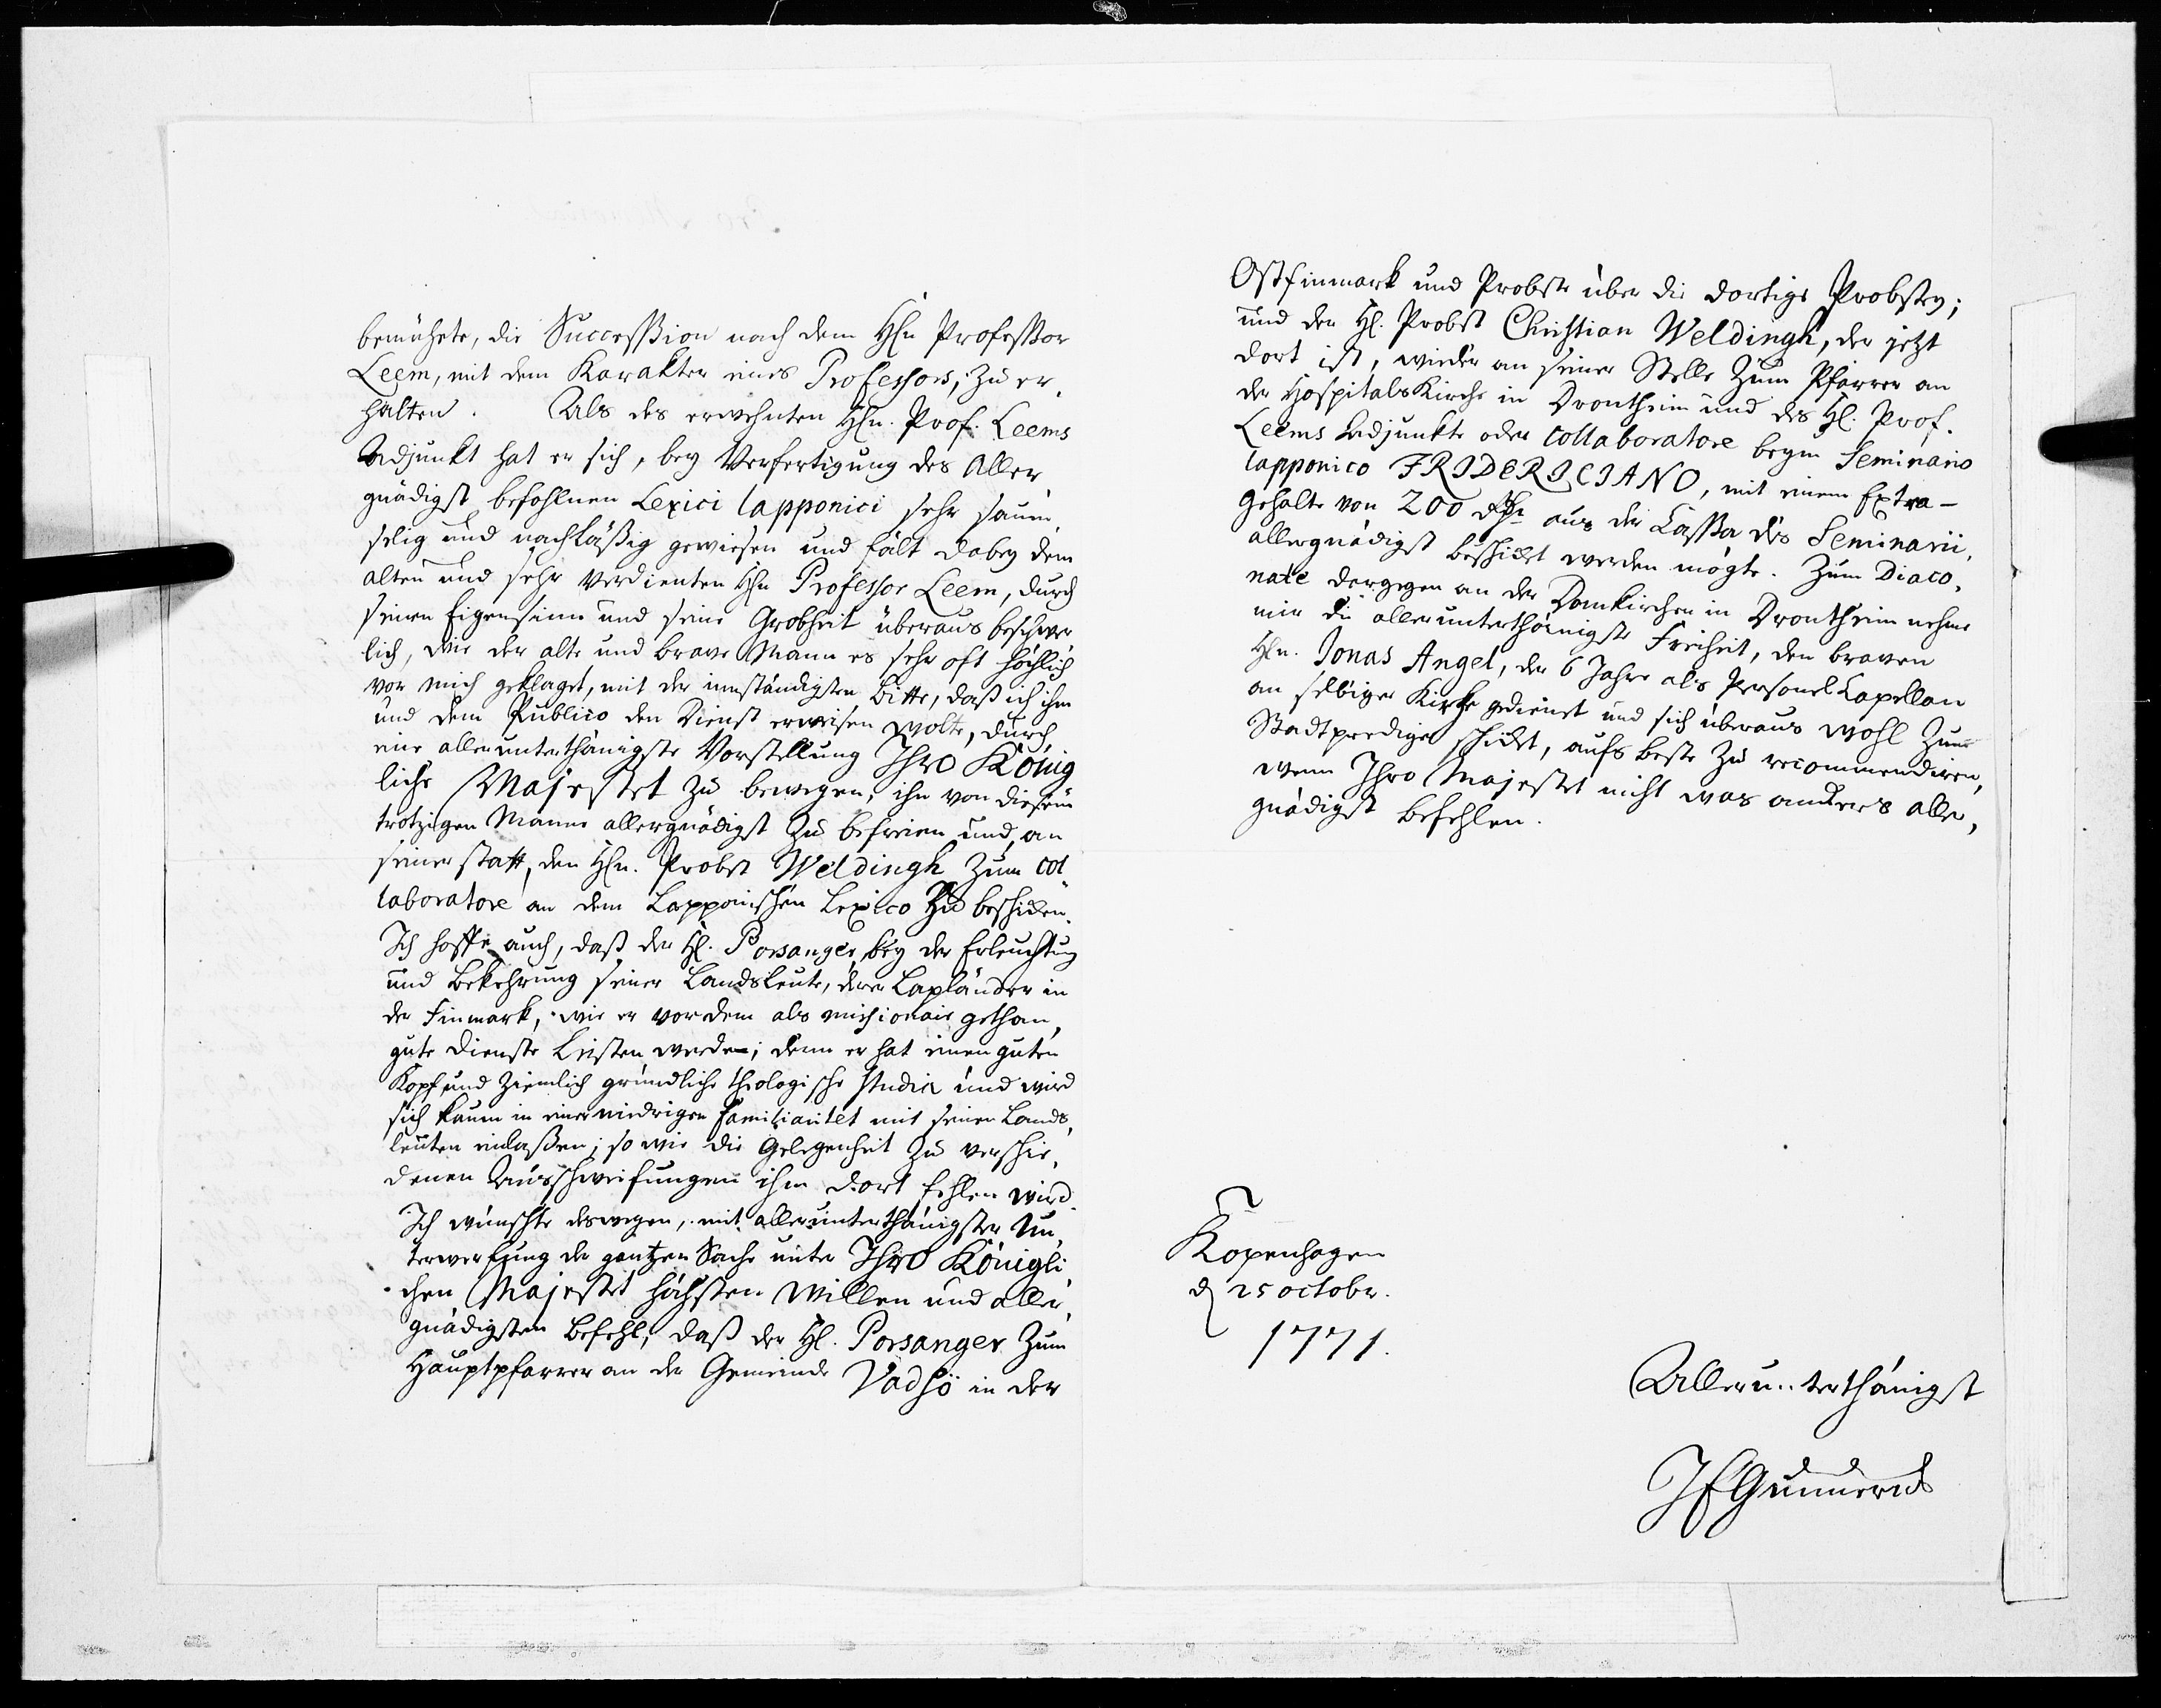 bemühete, die Successsion nach dem Hhn Professsor
Leem, mit dem Karakter eines Professors, zu er,
halten. Als des erwehnten Hhn. Prof. Leems
Adjunkt hat er sich, bey Verfertigung des Aller
gnädigst befohlnen Lexici lapponici sehr saum,
selig und nachläßig gewiesen und fält dabey dem
alten und sehr verdienten Hhn Professor Leem, durch
seinen Eigensinn und seine Grobheit überaus beschwer
lich, wie der alte und brave Mann es sehr oft höchlich
vor mich geklaget, mit der inständigsten Bitte, daß ich ihm
und dem Publico den Dienst erweisen wolte, durch
eine allerunterthänigste Vorstellung Ihro König
liche Majestet zu bewegen, ihn von diesem
trotzigen Manne allergnädigst zu befreien und, an
seiner statt, den Hhn. Probst Weldingh zum col
laboratore an dem Lapponischen Lexico zu beschiken.
Ich hoffe auch, daß der Hl. Porsanger, bey der Erleuchtung
und Bekehrung seiner Landsleute, derer Lapländer in
der Finmark, wie er vordem als missionair gethan,
gute Dienste leisten werde; denn er hat einen guten
Kopf und ziemlich gründliche theologische studia und wird
sich kaum in einer niedrigen familiaritet mit seinen Lands,
leuten einlaßen; so wie die Gelegenheit zu verschie,
denen Ausschweifungen ihm dort fehlen wird.
Ich wünschte deswegen, mit allerunterthänigster Un,
terwerfung der gantzen Sache unter Ihro Königli
chen Majestet höchsten Willen und aller,
gnädigsten Befehl, daß der Hl. Porsanger zum
Hauptpfarrer an der Gemeinde Vadsö in der
Ostfinmark und Probste über die dortige Probstey;
und der Hl. Probst Christian Weldingh, der jetzt
dort ist, wieder an seiner Stelle zum Pfarrer an
der Hospitalskirche in Drontheim und des Hl. Prof.
Leems Adjunkte oder Collaboratore beym Seminario
lapponico FRIDERICIANO, mit einem Extra-
gehalte von 200 Rthr aus der Cassa des Seminarii,
allergnädigst beschikt werden mögte. Zum Diaco,
nate dargegen an der Domkirchen in Drontheim nehme
mir die allerunterthänigste Freiheit, den braven
Hhn. Jonas Angel, der 6 Jahre als Personel Capellan
an selbiger Kirche gedienet und sich überaus wohl zum
Stadtprediger schikt, aufs beste zu recommendiren,
wenn Ihro Majestet nicht was anders aller,
gnädigst befehlen.
Kopenhagen
d 25 octobr.
1771.
Allerunterthänigst
JEGunnerus